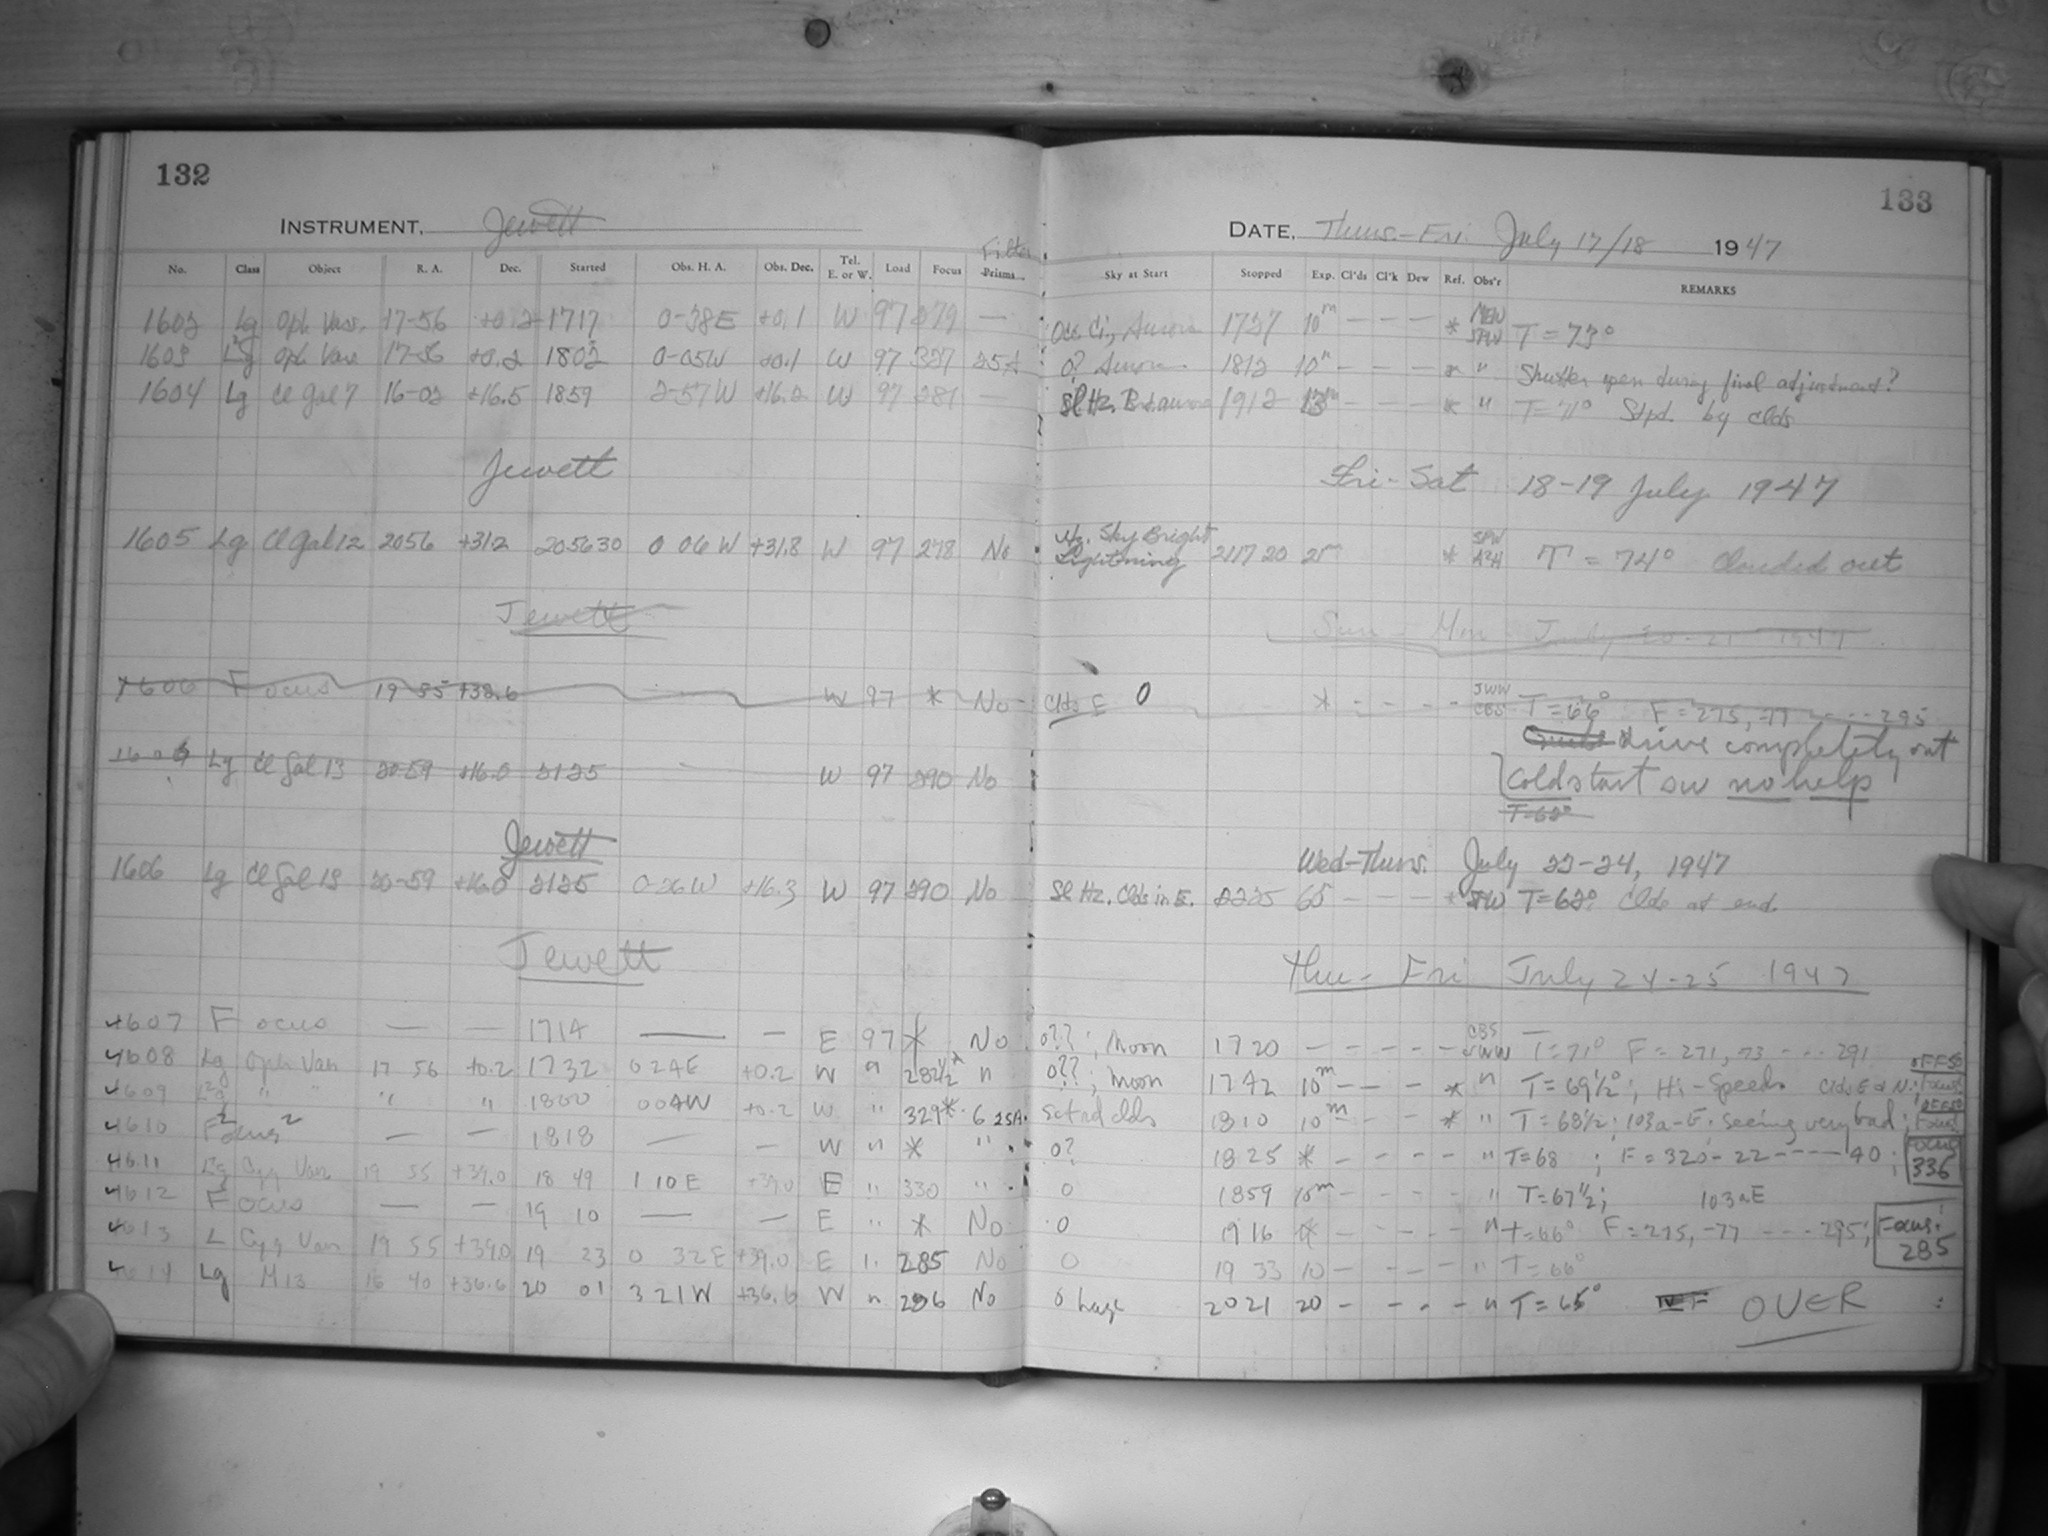 132
133
INSTRUMENT, Jewett
DATE, Thurs.-Fri. July 17/18 1947
No. Class Object R. A. Dec. Started Obs. H. A. Obs. Dec. Tel. E. or W. Load Focus Filter Prisms
Sky at Start Stopped Exp. Cl'ds Cl'k Dew Ref. Obs'r REMARKS
1602 Lg Oph Var. 17-56 +0.2 1717 0-38E +0.1 W 97 279 — Occ Ci, Aurora 1727 10m - - - * T = 73°
1603 Oph Var 17-56 +0.2 1802 0-05W +0.1 W 97 327 25A 0? Aurora 1812 10m - - - " Shutter open during final adjustment?
1604 Lg Cl Gal 7 16-02 +16.5 1859 2-57W +16.2 W 97 281 — Sl Hz. 1912 13m - - - * " T=71° Stpd. by clds
Jewett Fri-Sat 18-19 July 1947
1605 Lg Cl Gal 12 2056 +31.2 205630 0 06 W +31.8 W 97 278 No Hz. Sky Bright Lightning 2117 20 21m * SPW T = 74° Clouded out
Jewett Sun - Mon July 20-21 1947
1606 Focus 19 55 +38.6 W 97 * No Clds E 0 * - - - - JWW CBS T=66° F = 275, -77 - - - 295
drive completely out
1606 Lg Cl Gal 13 20-59 +16.0 2125 W 97 290 No
Cold start sw no help
T=62°
Jewett Wed-Thurs. July 23-24, 1947
1606 Lg Cl Gal 13 20-59 +16.0 2125 0-26W +16.3 W 97 290 No Sl Hz. Clds in E. 2225 60 - - - * SPW T=62° Clds at end
Jewett Thu - Fri July 24-25 1947
4607 Focus — — 1714 — — E 97 * No 0??, Moon 1720 - - - - - CBS JWW T=71° F = 271, 73 - - - 291
4608 Lg Oph Var 17 56 +0.2 1732 0 24E +0.2 W " 282½ " 0??, Moon 1742 10m - - - * " T=69½°; Hi-Speed Clds E & N;
4609 " " " " 1800 0 04W +0.2 W " 329* 6 25A. sctrd clds 1810 10m - - * " T=68½; 103a-E; seeing very bad;
4610 Focus — — 1818 — — W " * " 0? 1825 * - - - - " T=68 ; F=320-22 ---- 40; Focus 336
4611 Cyg Var 19 55 +39.0 18 49 1 10E +39.0 E " 330 " 0 1859 10m - - - " T=67½; 103aE
4612 Focus — — 19 10 — — E " * No 0 1916 * - - - - " T=66° F=275, -77 - - - 295; Focus: 285
4613 L Cyg Var 19 55 +39.0 19 23 0 32E +39.0 E " 285 No 0 19 33 10 - - - - " T=66°
4614 Lg M13 16 40 +36.6 20 01 3 21W +36.6 W " 286 No 0 haze 2021 20 - - - - " T=65° OVER